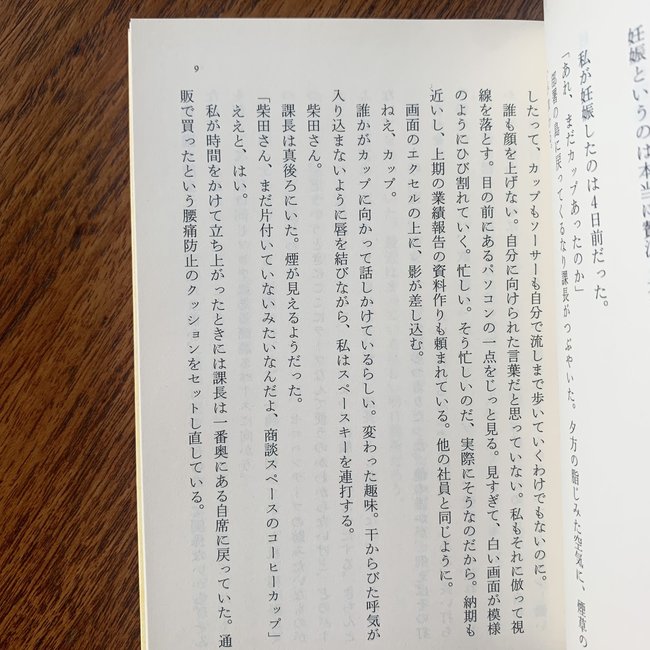 妊娠というのは本当に贅沢
私が妊娠したのは4日前だった。
「あれ、まだカップあったのか」
部署の島に戻ってくるなり課長がつぶやいた。夕方の脂じみた空気に、煙草の
したって、カップもソーサーも自分で流しまで歩いていくわけでもないのに。
誰も顔を上げない。自分に向けられた言葉だと思っていない。私もそれに倣って視
線を落とす。目の前にあるパソコンの一点をじっと見る。見すぎて、白い画面が模様
のようにひび割れていく。忙しい。そう忙しいのだ、実際にそうなのだから。納期も
近いし、上期の業績報告の資料作りも頼まれている。他の社員と同じように。
画面のエクセルの上に、影が差し込む。
ねえ、カップ。
誰かがカップに向かって話しかけているらしい。変わった趣味。干からびた呼気が
入り込まないように唇を結びながら、私はスペースキーを連打する。
柴田さん。
課長は真後ろにいた。煙が見えるようだった。
「柴田さん、まだ片付いていないみたいなんだよ、商談スペースのコーヒーカップ」
ええと、はい。
私が時間をかけて立ち上がったときには課長は一番奥にある自席に戻っていた。通
販で買ったという腰痛防止のクッションをセットし直している。
9